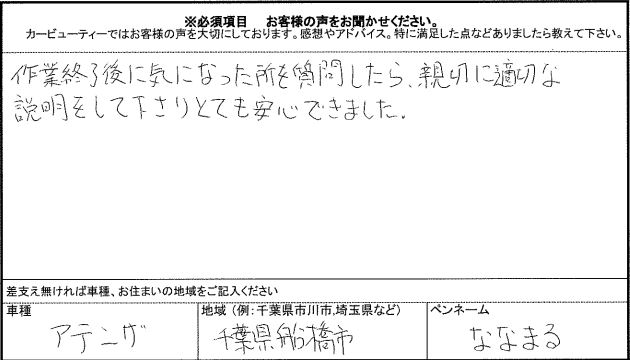 ※必須項目　お客様の声をお聞かせください。
カービューティーではお客様の声を大切にしております。感想やアドバイス。特に満足した点などありましたら教えて下さい。
作業終了後に気になった所を質問したら、親切に適切な
説明をして下さりとても安心できました。
差支え無ければ車種、お住まいの地域をご記入ください
車種　地域（例：千葉県市川市,埼玉県など）　ペンネーム
アテンザ　千葉県船橋市　ななまる